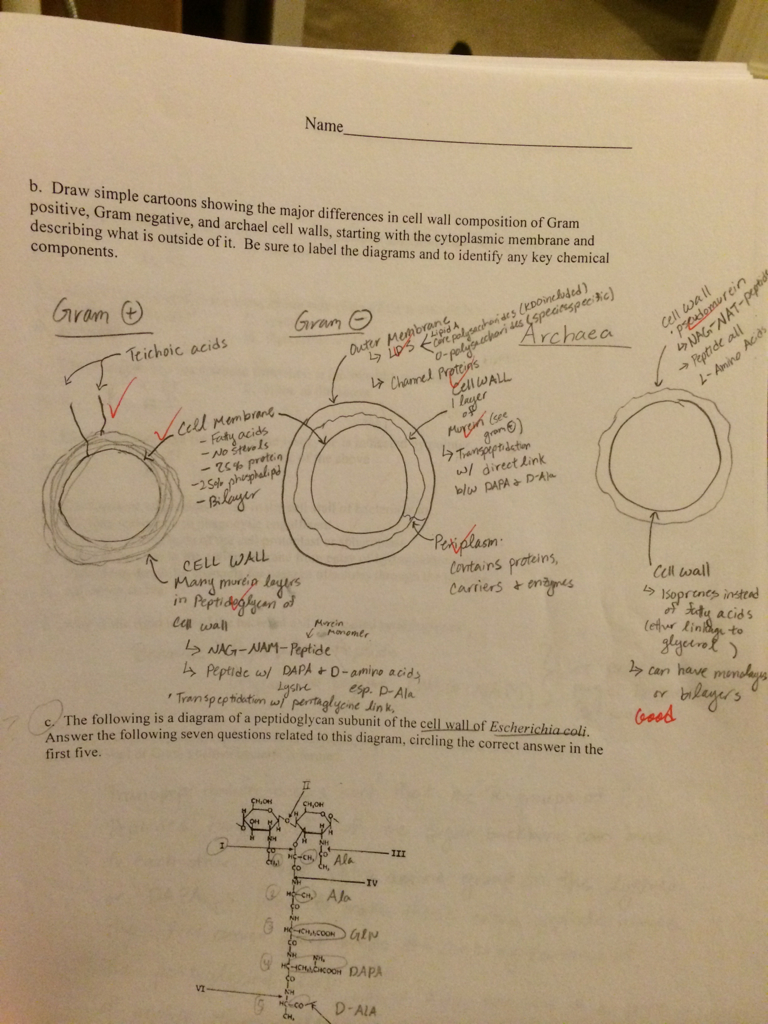 Name
b. Draw simple cartoons showing the major differences in cell wall composition of Gram
positive, Gram negative, and archael cell walls, starting with the cytoplasmic membrane and
describing what is outside of it. Be sure to label the diagrams and to identify any key chemical
components.
Gram +
Teichoic acids
Cell Membrane
- Fatty acids
- No sterols
- 75% protein
- 25% phospholipid
- Bilayer
CELL WALL
Many murein layers
in Peptidoglycan of
Cell wall
Murein
monomer
↳ NAG-NAM-Peptide
↳ Peptide w/ DAPA & D-amino acids
Lysine esp. D-Ala
Transpeptidation w/ pentaglycine link.
Gram −
Outer Membrane
↳ LPS
Lipid A
Core polysaccharides (KDO included)
O-polysaccharides (species specific)
↳ Channel Proteins
Cell WALL
1 layer
of
Murein (see
gram +)
↳ Transpeptidation
w/ direct link
b/w DAPA & D-Ala
Periplasm.
contains proteins,
carriers & enzymes
Archaea
Cell wall
pseudomurein
↳ NAG-NAT-peptide
→ Peptide all
L-Amino Acids
Cell wall
↳ Isoprenes instead
of fatty acids
(ether linkage to
glycerol)
↳ can have monolayer
or bilayers
Good
c. The following is a diagram of a peptidoglycan subunit of the cell wall of Escherichia coli.
Answer the following seven questions related to this diagram, circling the correct answer in the
first five.
II
CH₂OH
CH₂OH
I
III
Ala
IV
Ala
Gln
DAPA
VI
D-ALA